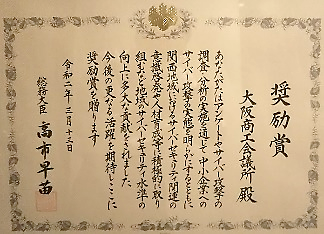 奨励賞
大阪商工会議所 殿
あなたがたはアンケートやサイバー攻撃の
調査・分析の実施を通じて中小企業への
サイバー攻撃の実態を明らかにするとともに
関西地域におけるサイバーセキュリティ関連の
意識啓発や人材育成等に積極的に取り
組むなど地域のサイバーセキュリティ水準の
向上に多大な貢献をされました
今後の更なる活躍を期待しここに
奨励賞を贈ります
令和二年二月十三日
総務大臣 高市早苗